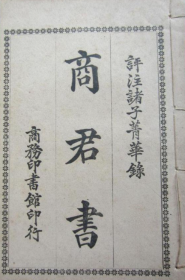 評注諸子菁華錄
商君書
商務印書館印行